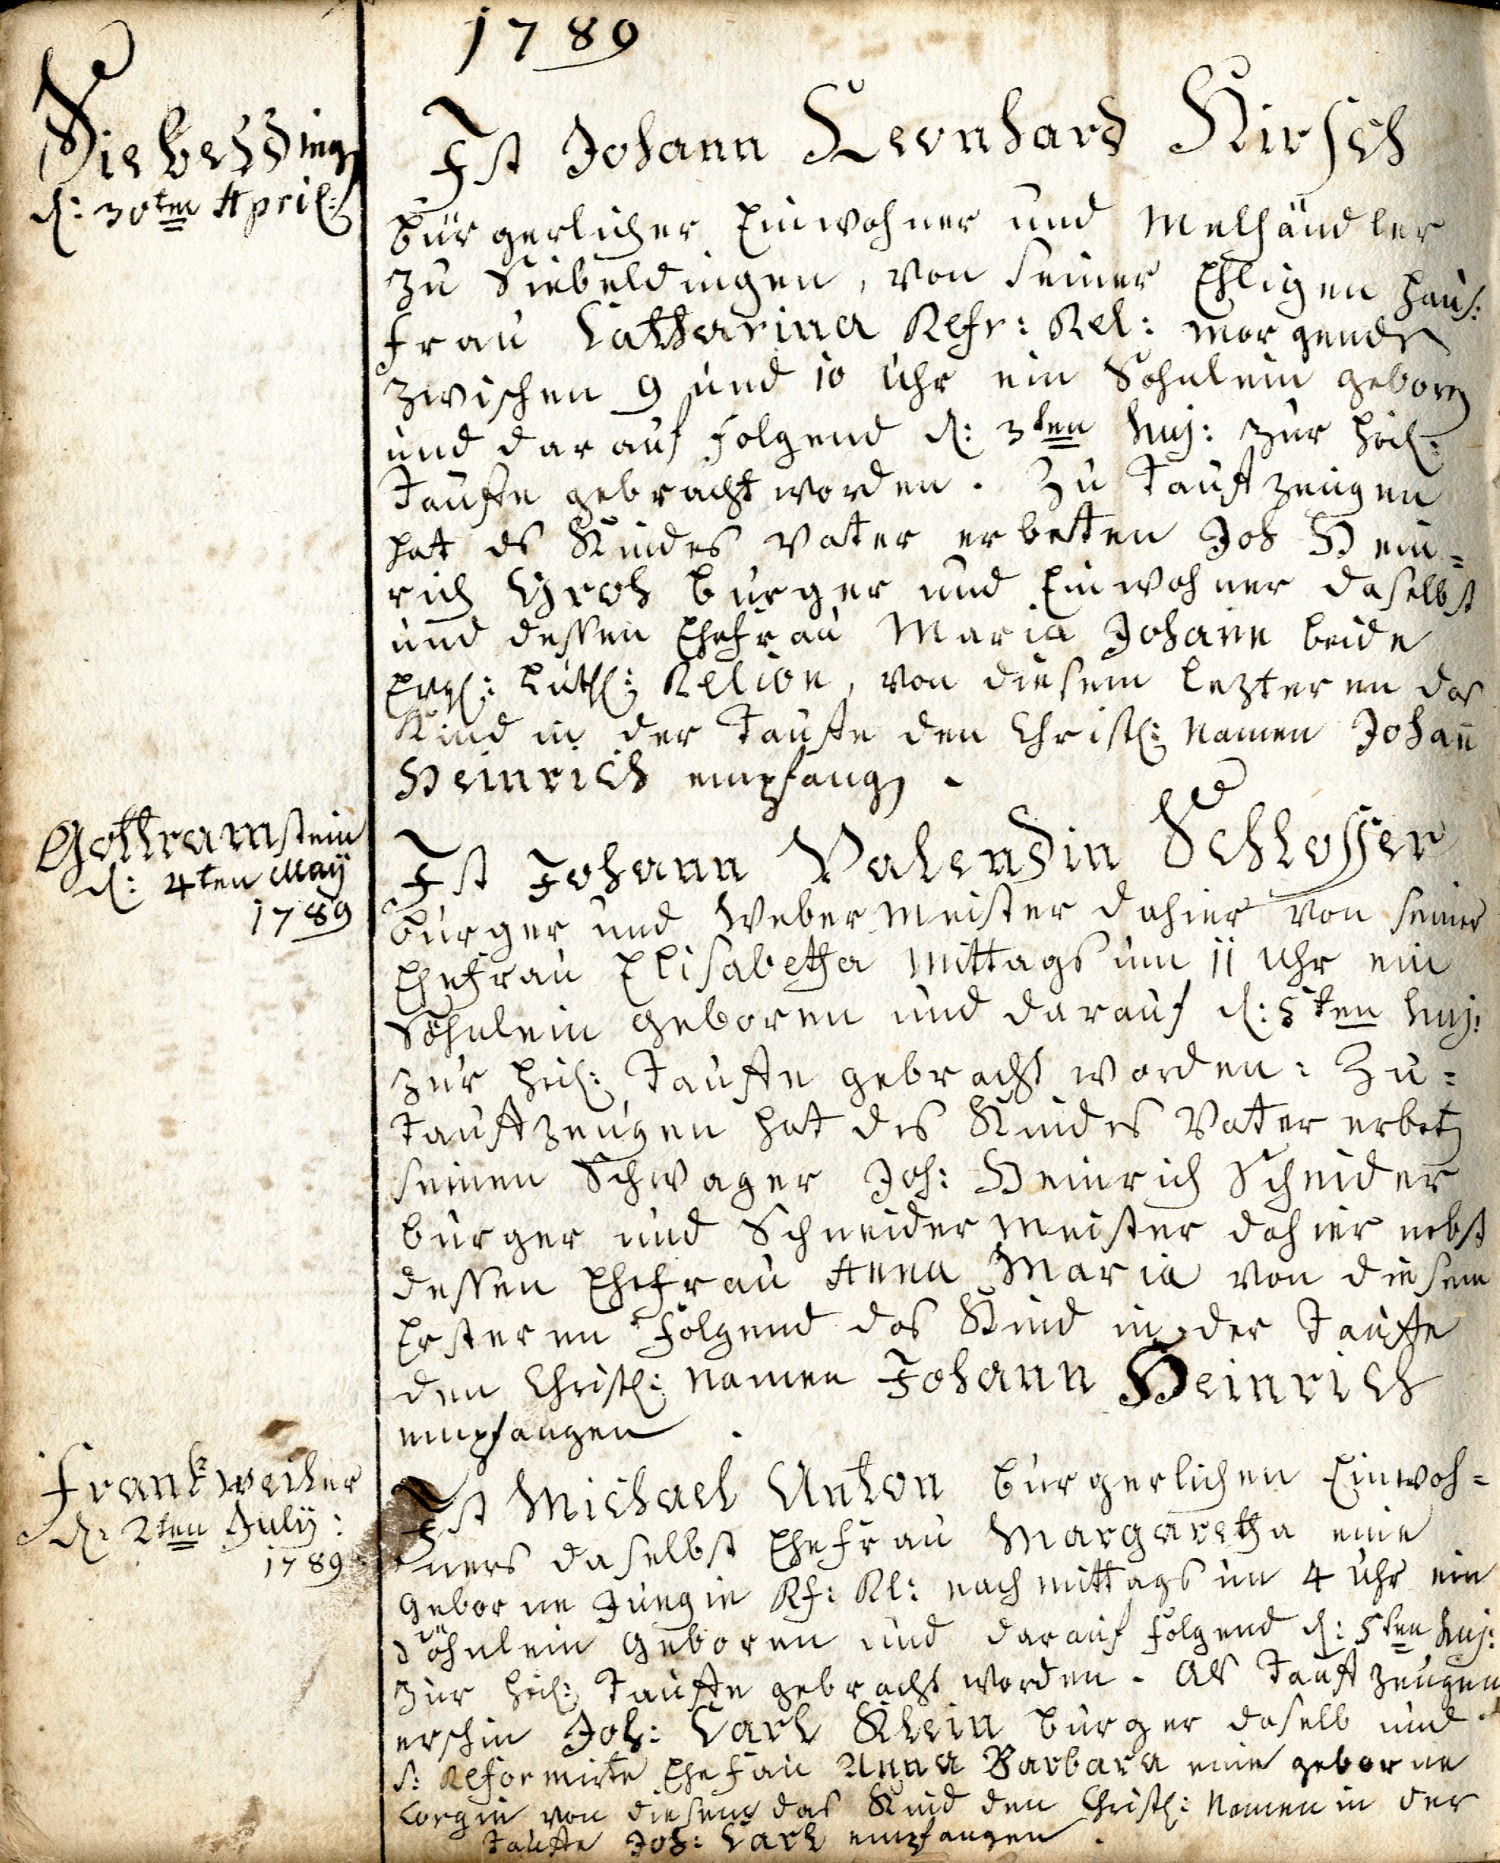 1789
Siebelding
d: 30ten April:
Ist Johann Leonhard Hirsch
bürgerlicher Einwohner und Melhändler
zu Siebeldingen, von seiner Ehligen Haus:
frau Catharina Refr: Rel: morgends
zwischen 9 und 10 Uhr ein Söhnlein geboren
und darauf folgend d: 3ten huj: zur heil:
Tauffe gebracht worden. Zu Taufzeugen
hat ds Kindes Vater erbetten Joh Hein=
rich Groh burger und Einwohner daselbst
und dessen Ehefrau Maria Johann beide
Evgl: Luth: Relion, von diesem lezteren das
Kind in der Tauffe den Christl: Namen Johan̄
Heinrich empfangen.
Gottramstein
d: 4ten May
1789
Ist Johann Valendin Schlosser
burger und Webermeister dahier von seiner
Ehefrau Elisabetha Mittags um 11 Uhr ein
Söhnlein geboren und darauf d: 5ten huj:
zur heil: Tauffe gebracht worden: Zu=
Taufzeugen hat des Kindes Vater erbeten
seinen Schwager Joh: Heinrich Schnider
burger und Schneidermeister dahier nebst
dessen Ehefrau Anna Maria von diesem
Ersteren folgend das Kind in der Tauffe
den Christl: Namen Johann Heinrich
empfangen.
Frankweiler
d: 2ten July:
1789
Ist Michael Anton burgerlichen Einwoh=
ners daselbst Ehefrau Margaretha eine
geborne Jungin Rf: Rl: nachmittags um 4 Uhr ein
Söhnlein geboren und darauf folgend d: 5ten huj:
zur heil: Tauffe gebracht worden. Als Taufzeugen
erschin Joh: Carl Klein burger daselb und
s: Reformirte Ehefrau Anna Barbara eine geborne
von diesem das Kind den Christl: Namen in der
Tauffe Joh: Carl empfangen.